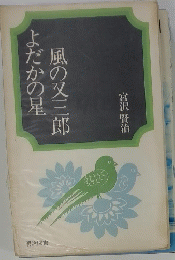 風の又三郎
よだかの星
宮沢賢治